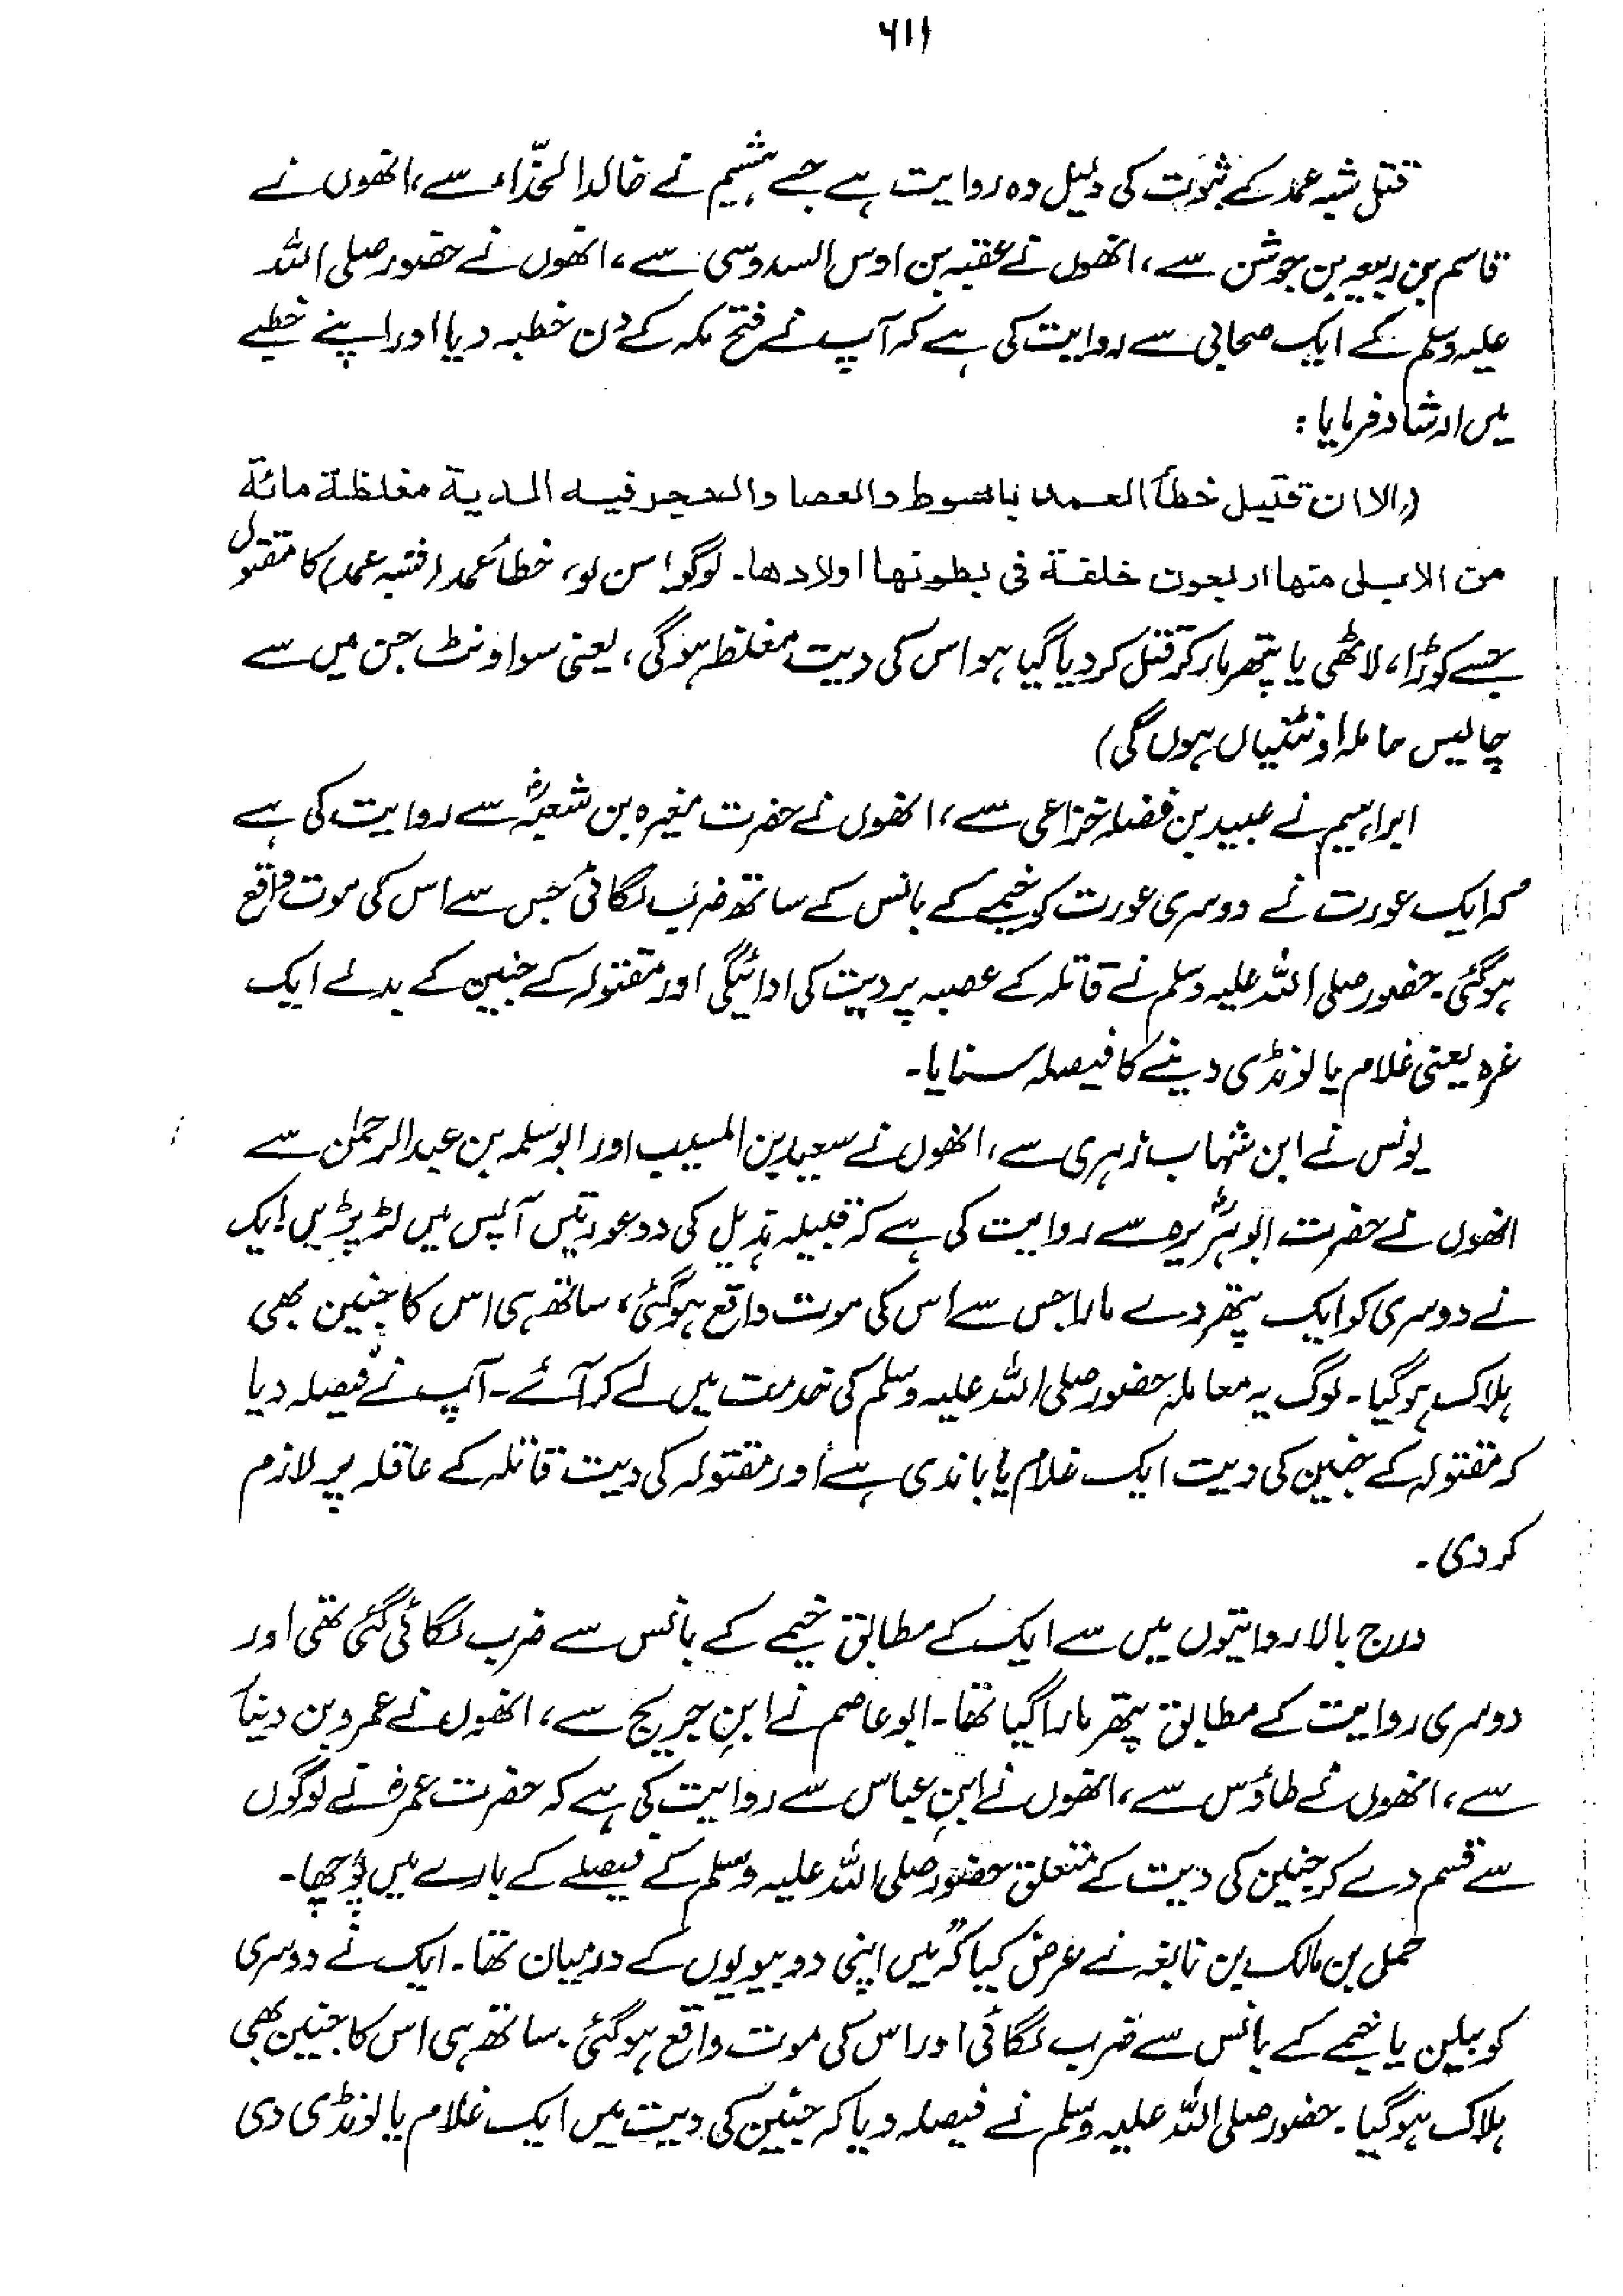 ۶۱۱
قتل شبہ عمد کے ثبوت کی دلیل وہ روایت ہے جسے ہشیم نے خالد الحذّاء سے، انھوں نے
قاسم بن ربیعہ بن جوشن سے، انھوں نے عقبہ بن اوس السدوسی سے، انھوں نے حضور صلی اللہ
علیہ وسلم کے ایک صحابی سے روایت کی ہے کہ آپ نے فتح مکہ کے دن خطبہ دیا اور اپنے خطبے
میں ارشاد فرمایا:
(الا ان قتیل خطأ العمد بالسوط والعصا والحجر فیہ الدیة مغلظة مائة
من الابل منھا اربعون خلفة فی بطونھا اولادھا۔ لوگو! سن لو، خطأ عمد (شبہ عمد) کا مقتول
جسے کوڑا، لاٹھی یا پتھر مار کر قتل کر دیا گیا ہو اس کی دیت مغلظہ ہوگی، یعنی سو اونٹ جن میں سے
چالیس حاملہ اونٹنیاں ہوں گی)
ابراہیم نے عبید بن فضلہ خزاعی سے، انھوں نے حضرت مغیرہ بن شعبہؓ سے روایت کی ہے
کہ ایک عورت نے دوسری عورت کو خیمے کے بانس کے ساتھ ضرب لگائی جس سے اس کی موت واقع
ہوگئی۔ حضور صلی اللہ علیہ وسلم نے قاتلہ کے عصبہ پر دیت کی ادائیگی اور مقتولہ کے جنین کے بدلے ایک
غرہ یعنی غلام یا لونڈی دینے کا فیصلہ سنایا۔
یونس نے ابن شہاب زہری سے، انھوں نے سعید بن المسیب اور ابو سلمہ بن عبدالرحمٰن سے
انھوں نے حضرت ابو ہریرہؓ سے روایت کی ہے کہ قبیلہ ہذیل کی دو عورتیں آپس میں لڑ پڑیں۔ ایک
نے دوسری کو ایک پتھر دے مارا جس سے اس کی موت واقع ہوگئی، ساتھ ہی اس کا جنین بھی
ہلاک ہوگیا۔ لوگ یہ معاملہ حضور صلی اللہ علیہ وسلم کی خدمت میں لے کر آئے۔ آپ نے فیصلہ دیا
کہ مقتولہ کے جنین کی دیت ایک غلام یا باندی ہے اور مقتولہ کی دیت قاتلہ کے عاقلہ پر لازم
کر دی۔
درج بالا روایتوں میں سے ایک کے مطابق خیمے کے بانس سے ضرب لگائی گئی تھی اور
دوسری روایت کے مطابق پتھر مارا گیا تھا۔ ابو عاصم نے ابنِ جریج سے، انھوں نے عمرو بن دینار
سے، انھوں نے طاؤس سے، انھوں نے ابنِ عباس سے روایت کی ہے کہ حضرت عمرؓ نے لوگوں
سے قسم دے کر جنین کی دیت کے متعلق حضور صلی اللہ علیہ وسلم کے فیصلے کے بارے میں پوچھا۔
حمل بن مالک بن نابغہ نے عرض کیا کہ "میں اپنی دو بیویوں کے درمیان تھا۔ ایک نے دوسری
کو بیلن یا خیمے کے بانس سے ضرب لگائی اور اس کی موت واقع ہوگئی۔ ساتھ ہی اس کا جنین بھی
ہلاک ہوگیا۔ حضور صلی اللہ علیہ وسلم نے فیصلہ دیا کہ جنین کی دیت میں ایک غلام یا لونڈی دی